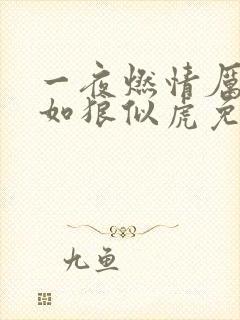 一夜燃情厲
如狼似虎免
九鱼